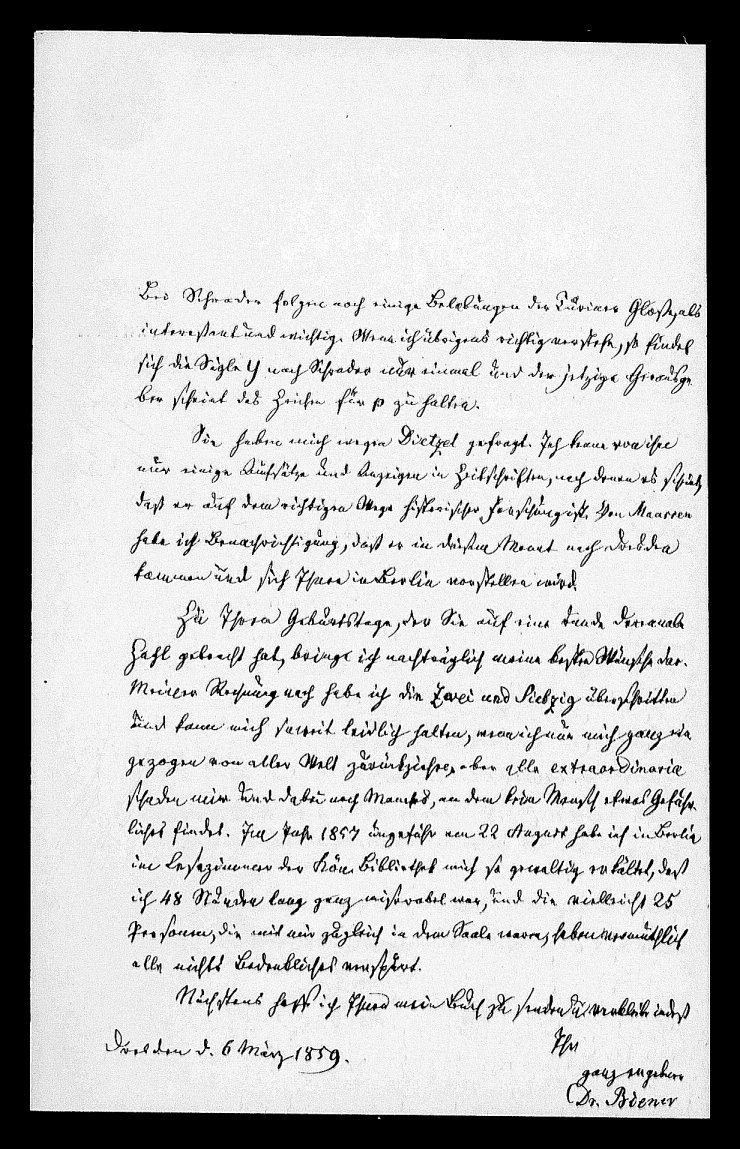 Bei Schrader folgen noch einige Belobungen der Turiner Glosse, als
interessant und wichtig. Wenn ich übrigens richtig verstehe, so findet
sich die Sigle y nach Schrader nur einmal und der jetzige Herausge
ber scheint das Zeichen für p zu halten.
Sie haben mich wegen Dietzel gefragt. Ich kenne von ihm
nur einige Aufsätze und Anzeigen in Zeitschriften, nach denen es scheint,
daß er auf dem richtigen Wege historischer Forschung ist. Von Maassen
habe ich Benachrichtigung, daß er in diesem Monat nach Dresden
kommen und sich Ihnen in Berlin vorstellen wird.
Zu Ihrem Geburtstage, der Sie auf eine runde
Zahl gebracht hat, bringe ich nachträglich meine besten Wünsche dar.
Meiner Rechnung nach habe ich die Zwei und Siebzig überschritten
und kann mich soweit leidlich halten, wenn ich nur mich ganz ein
gezogen von aller Welt zurückziehe, aber alle extraordinaria
schaden mir und dabei noch Manches, an dem kein Mensch etwas Gefähr
liches findet. Im Jahr 1857 ungefähr am 22 August habe ich in Berlin
im Lesezimmer der Kön. Bibliothek mich so gewaltig erkältet, daß
ich 48 Stunden lang ganz miserabel war, und die vielleicht 25
Personen, die mit mir zugleich in dem Saale waren, haben vermuthlich
alle nichts Bedenkliches verspürt.
Nächstens hoffe ich Ihnen mein Buch zu senden u. verbleibe indeß
Ihr
ganz ergebener
Dr. Biener
Dresden d. 6 März 1859.